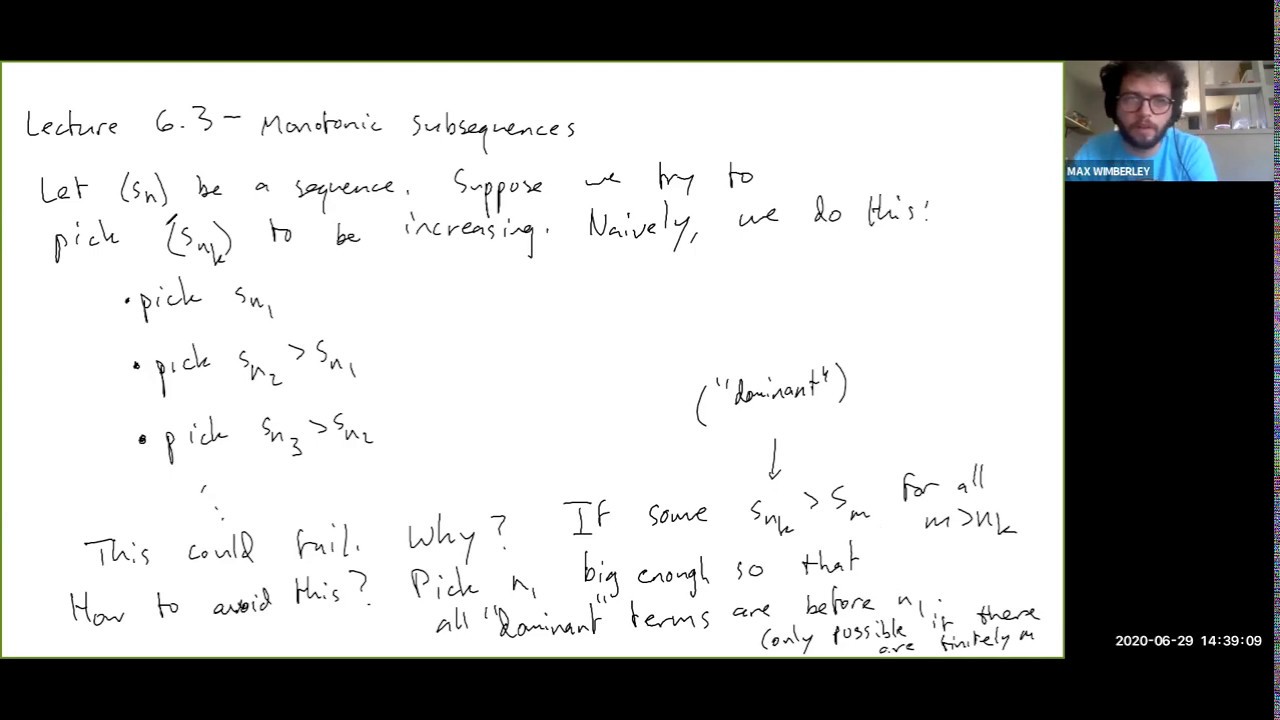 Lecture 6.3 - Monotonic subsequences
Let (sn) be a sequence. Suppose we try to
pick (snk) to be increasing. Naively, we do this:
• pick sn1
• pick sn2 > sn1
• pick sn3 > sn2
⋮
("dominant")
↓
This could fail. Why? If some snk > sm for all
m > nk
How to avoid this? Pick n1 big enough so that
all "dominant" terms are before n1
(only possible if there
are finitely m
MAX WIMBERLEY
2020-06-29 14:39:09